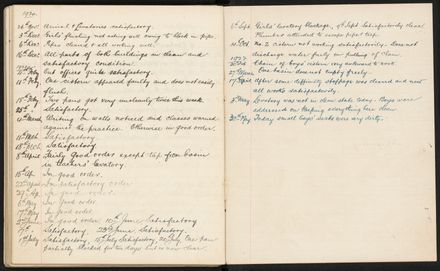 1930.
28th Nov. Urinal & Lavatories satisfactory.
5th Dec. Girls' flushing not acting well owing to block in pipe.
9th Dec. Pipes cleared & all working well.
16th Dec. All parts of both buildings in clean and
satisfactory condition.
Feby. Out offices quite satisfactory.
11th Feby. One cistern appeared faulty and does not easily
flush.
18th Feby. Two pans got very unclean twice this week
Satisfactory.
11th March. Writing on walls noticed and classes warned
against the practice. Otherwise in good order.
Mch. Satisfactory.
Mch. Satisfactory.
8th April. Fairly Good order except tap from basin
in teachers' lavatory.
15th Ap. In good order.
22nd In satisfactory order.
Ap. In good order.
6th May. In good order.
May. In good order.
In good order. 10th June. Satisfactory
17th Satisfactory. 23rd June. Satisfactory.
1st July Satisfactory. 15th July Satisfactory. 20th July. One pan
partially blocked for two days but is now clear.
6th Sept. Girls' lavatory blockage. 9th Sept. Satisfactorily clear
Plumber attended to escape pipe & tap.
11th Oct. No. 2 cistern not working satisfactorily. Does not
discharge water fully on pulling of chain.
Feb. Chain of boys' cistern very awkward to work.
One basin does not empty freely.
Apr. After some difficulty stoppage was cleared and now
all works satisfactorily.
3rd May. Lavatory was not in clean state today. Boys were
addressed on keeping everything here clean.
Nov. Today small boys' seats was dirty.